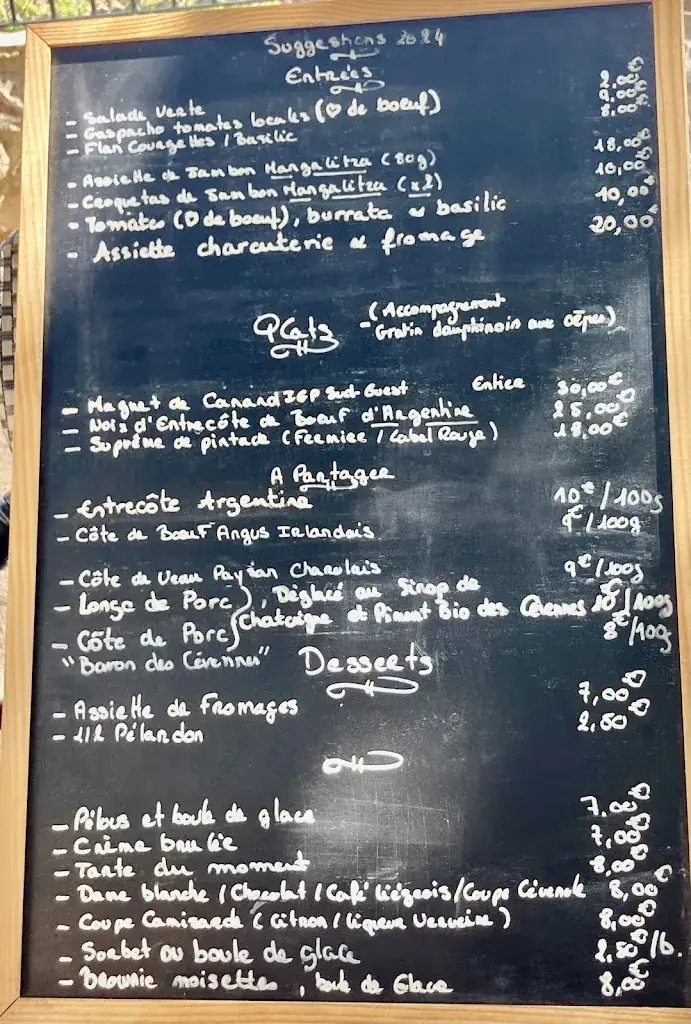 Suggestions 2024
Entrées
- Salade Verte 2,00€
- Gaspacho tomates locales (♡ de boeuf) 9,00€
- Flan Courgettes / Basilic 8,00€
- Assiette de Jambon Mangalitza (80g) 18,00€
- Croquetas de Jambon Mangalitza (x2) 10,00€
- Tomates (♡ de boeuf), burrata & basilic 10,00€
- Assiette charcuterie & fromage 20,00€
Plats
(Accompagnement
- Gratin dauphinois aux cèpes)
- Magret de Canard IGP Sud-Ouest Entier 30,00€
- Noix d'Entrecôte de Boeuf d'Argentine 25,00€
- Suprême de pintade (Fermier / Label Rouge) 18,00€
A Partager
- Entrecôte Argentine 10€/100g
- Côte de Boeuf Angus Irlandais 9€/100g
- Côte de Veau Paysan Charolais 9€/100g
- Longe de Porc }, Déglacé au Sirop de
Chataigne et Piment Bio des Cévennes 10€/100g
- Côte de Porc 8€/100g
"Baron des Cévennes"
Desserts
- Assiette de Fromages 7,00€
- 1/2 Pélardon 2,50€
- et boule de glace 7,00€
- Crème brulée 7,00€
- Tarte du moment 8,00€
- Dame blanche / Chocolat / Café liégeois / Coupe Cévenole 8,00€
- Coupe Camisarde (Citron / liqueur Verveine) 8,00€
- Sorbet ou boule de glace 2,50€/b.
- Brownie noisettes, boule de Glace 8,00€